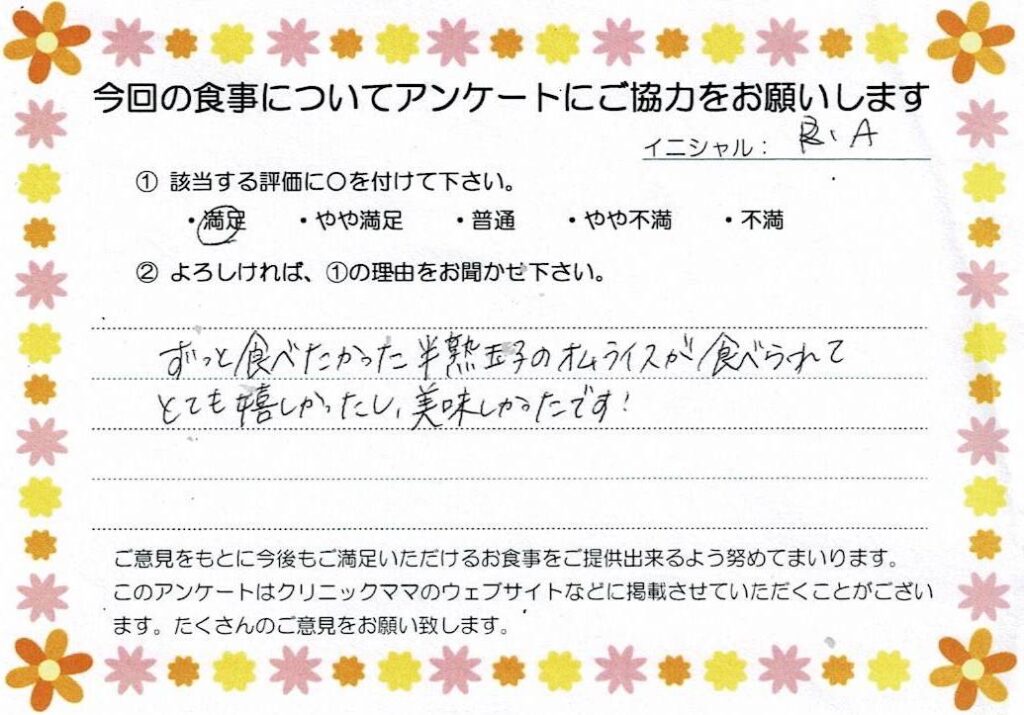 今回の食事についてアンケートにご協力をお願いします
イニシャル： R.A
① 該当する評価に〇を付けて下さい。
・満足 ・やや満足 ・普通 ・やや不満 ・不満
② よろしければ、①の理由をお聞かせ下さい。
ずっと食べたかった半熟玉子のオムライスが食べられて
とても嬉しかったし、美味しかったです！
ご意見をもとに今後もご満足いただけるお食事をご提供出来るよう努めてまいります。
このアンケートはクリニックママのウェブサイトなどに掲載させていただくことがござい
ます。たくさんのご意見をお願い致します。